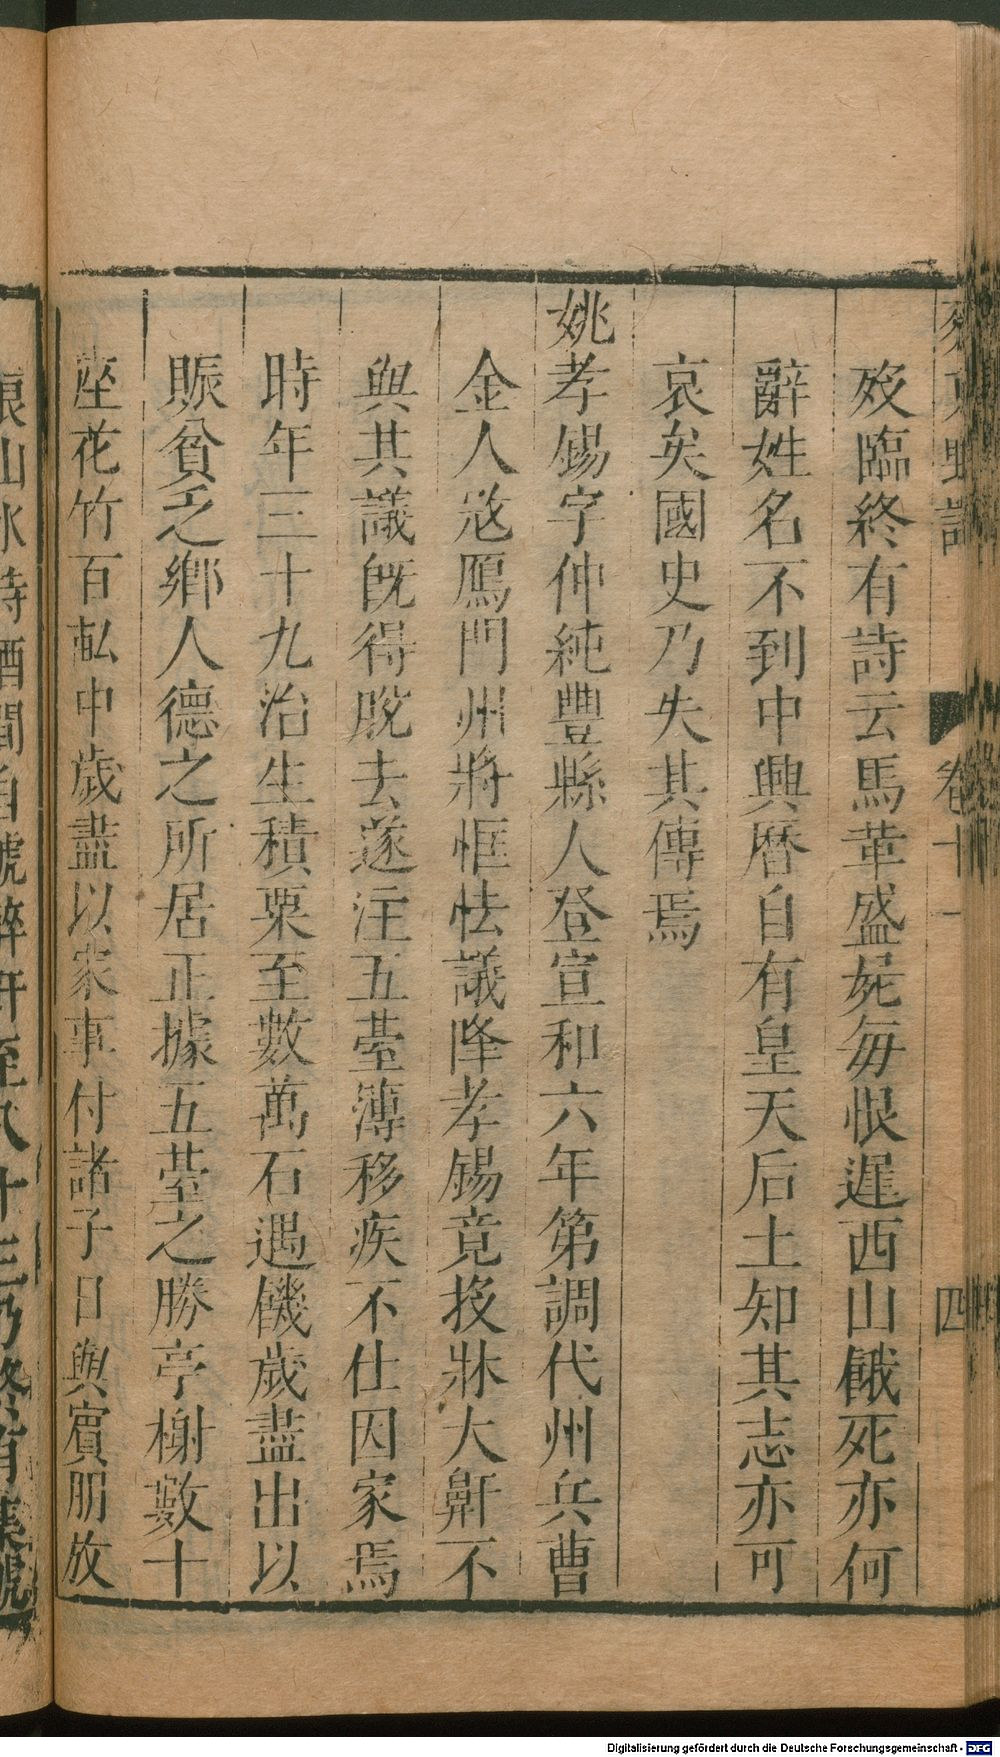 殁臨終有詩云馬革盛屍每恨遲西山餓死亦何
辭姓名不到中興曆自有皇天后土知其志亦可
哀矣國史乃失其傳焉
姚孝錫字仲純豐縣人登宣和六年第調代州兵曹
金人㓂鴈門州將恇怯議降孝錫竟投牀大鼾不
與其議旣得脫去遂注五臺簿移疾不仕因家焉
時年三十九治生積粟至數萬石遇饑歲盡出以
賑貧乏鄉人德之所居正據五臺之勝亭榭數十
座花竹百畒中歲盡以家事付諸子日與賓朋放
卷十一
四
山水詩酒間自號醉軒至八十三乃終有集號
Digitalisierung gefördert durch die Deutsche Forschungsgemeinschaft - DFG